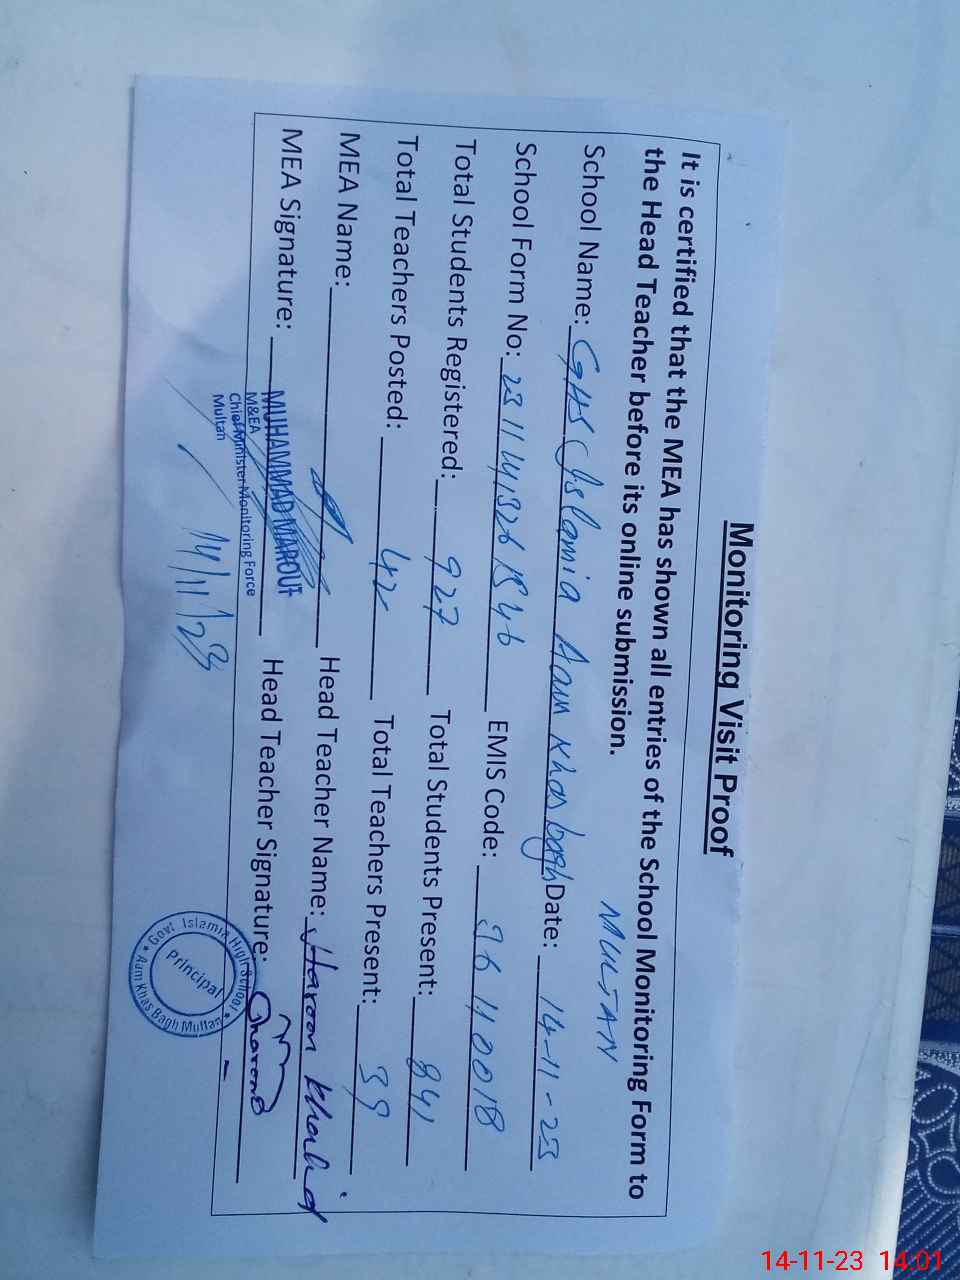 Monitoring Visit Proof
It is certified that the MEA has shown all entries of the School Monitoring Form to
the Head Teacher before its online submission.
MULTAN
School Name: GHS Islamia Aam Khas bagh Date: 14-11-23
School Form No: EMIS Code: 36110018
Total Students Registered: 927 Total Students Present: 841
Total Teachers Posted: 42 Total Teachers Present: 39
MEA Name: Head Teacher Name: Haroon Khalid
MEA Signature: Head Teacher Signature:
MUHAMMAD MAROUF
M&EA
Chief Minister Monitoring Force
Multan
14/11/23
Govt Islamia High School
Principal
Aam Khas Bagh Multan
14-11-23 14:01